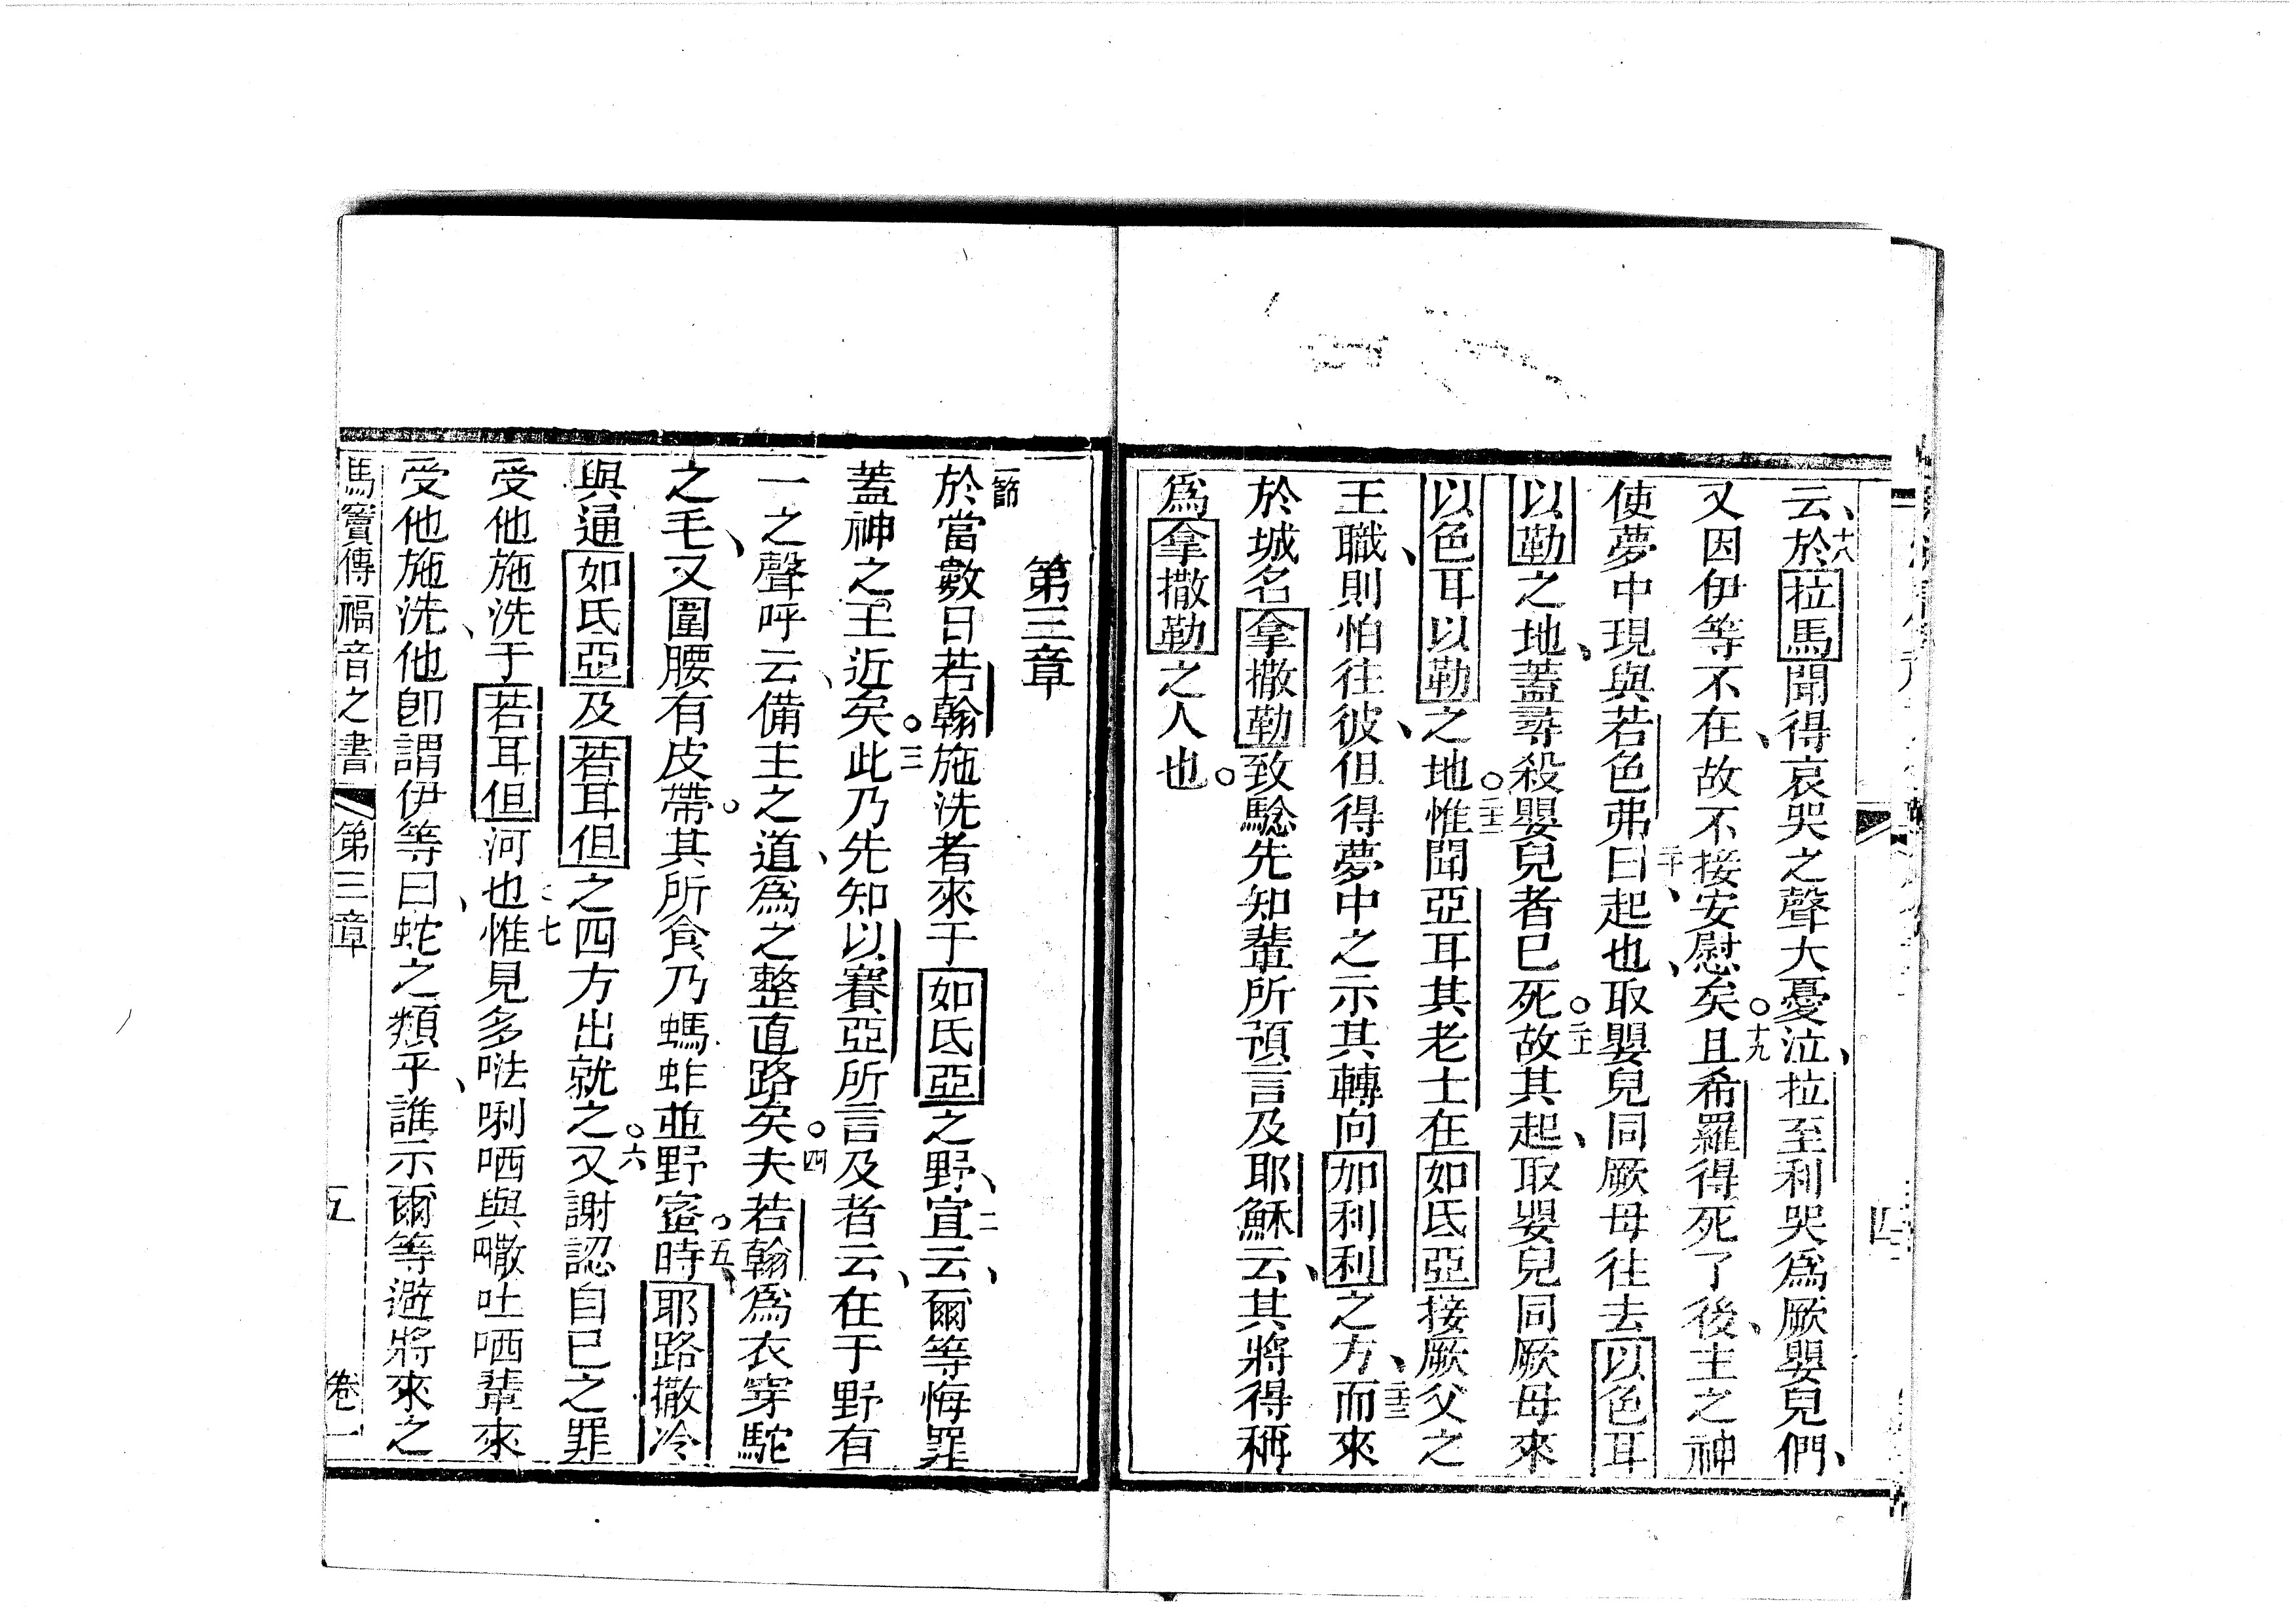 云、十八於拉馬聞得哀哭之聲大憂泣、拉至利哭爲厥嬰兒們、
又因伊等不在、故不接安慰矣。十九且希羅得死了後、主之神
使夢中現與若色弗二十曰、起也、取嬰兒同厥母往去以色耳
以勒之地、蓋尋殺嬰兒者已死。二十一故其起、取嬰兒同厥母來
以色耳以勒之地。二十二惟聞亞耳其老士在如氐亞接厥父之
王職、則怕往彼、但得夢中之示其轉向加利利之方、二十三而來
於城名拿撒勒致騐先知輩所預言及耶穌云、其將得稱
爲拿撒勒之人也。
第三章
一節於當數日若翰施洗者來于如氐亞之野、二宣云、爾等悔罪
蓋神之王近矣。三此乃先知以賽亞所言及者云、在于野有
一之聲呼云、備主之道、爲之整直路矣。四夫若翰爲衣穿駝
之毛、又圍腰有皮帶。其所食乃螞蚱並野蜜。五時、耶路撒冷
與通如氐亞及若耳但之四方出就之。六又謝認自己之罪
受他施洗于若耳但河也七惟見多𠵽唎哂與㘔吐哂輩來
受他施洗、他卽謂伊等曰、蛇之類乎、誰示爾等避將來之
馬竇傳福音之書 第三章 五 卷一